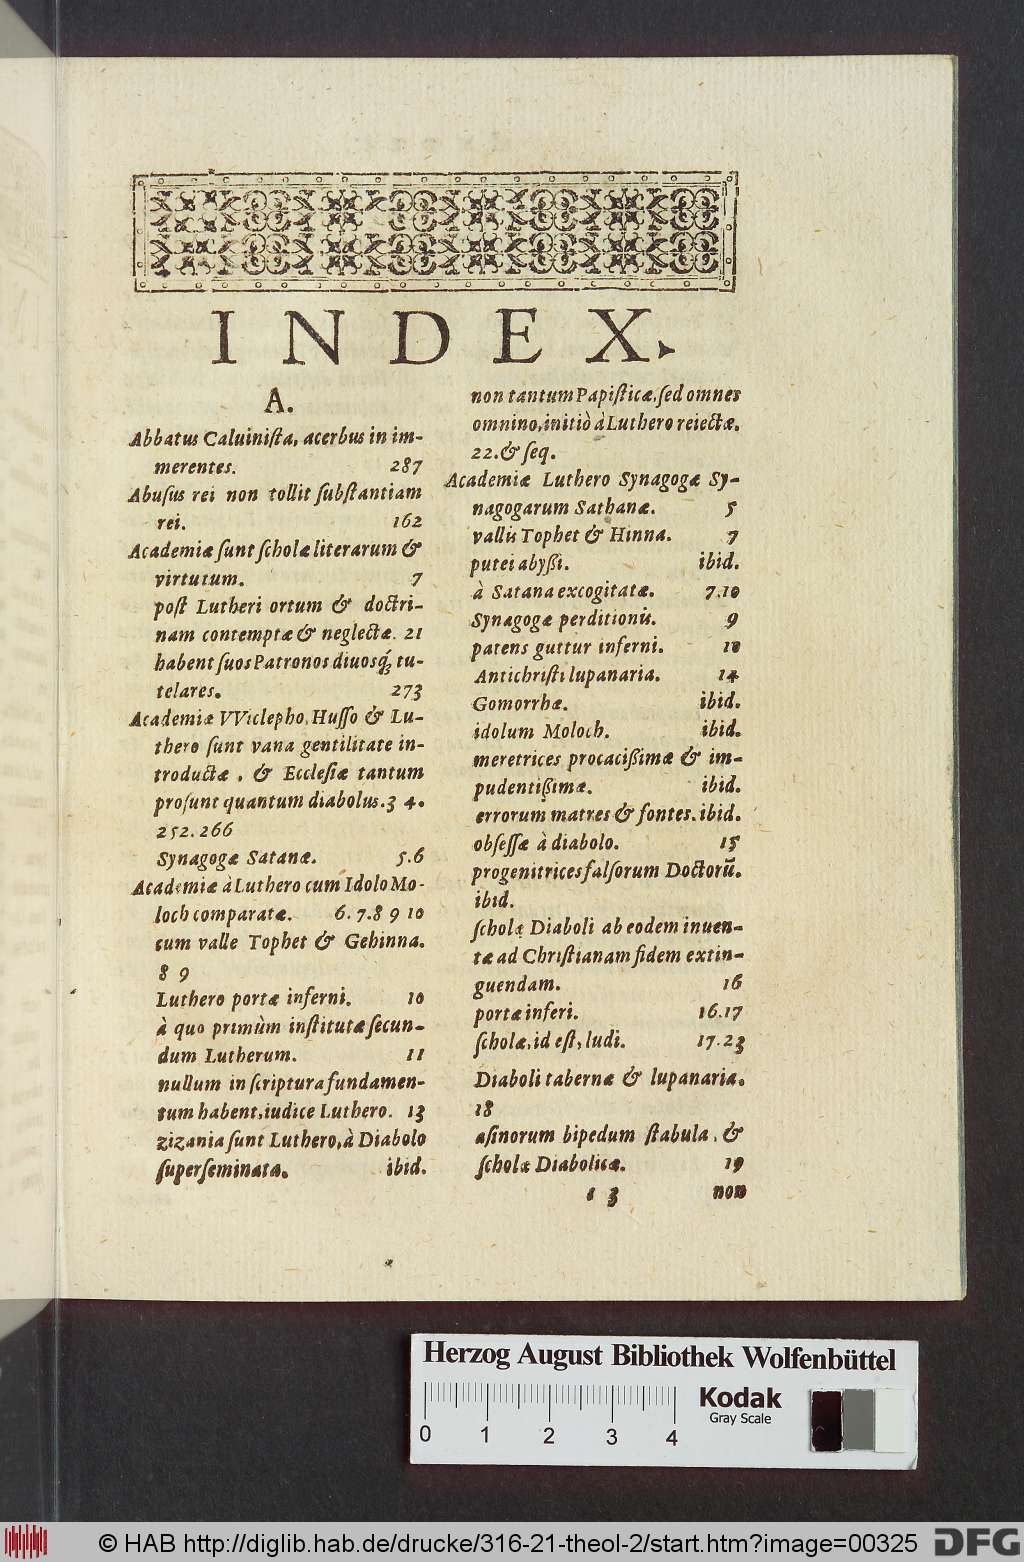 INDEX.
A.
Abbatus Caluinista, acerbus in im-
merentes. 287
Abuſus rei non tollit ſubſtantiam
rei. 162
Academiæ ſunt ſcholæ literarum &
virtutum. 7
poſt Lutheri ortum & doctri-
nam contemptæ & neglectæ. 21
habent ſuos Patronos diuosq́; tu-
telares. 273
Academiæ VViclepho, Huſſo & Lu-
thero ſunt vana gentilitate in-
troductæ, & Eccleſiæ tantum
proſunt quantum diabolus. 3 4.
252. 266
Synagogæ Satanæ. 5. 6
Academiæ à Luthero cum Idolo Mo-
loch comparatæ. 6. 7. 8 9 10
cum valle Tophet & Gehinna.
8 9
Luthero portæ inferni. 10
à quo primùm inſtitutæ ſecun-
dum Lutherum. 11
nullum in ſcriptura fundamen-
tum habent, iudice Luthero. 13
zizania ſunt Luthero, à Diabolo
ſuperſeminata. ibid.
non tantum Papiſticæ, ſed omnes
omnino, initiò à Luthero reiectæ.
22. & ſeq.
Academiæ Luthero Synagogæ Sy-
nagogarum Sathanæ. 5
vallis Tophet & Hinna. 7
putei abyßi. ibid.
à Satana excogitatæ. 7. 10
Synagogæ perditionis. 9
patens guttur inferni. 10
Antichriſti lupanaria. 14
Gomorrhæ. ibid.
idolum Moloch. ibid.
meretrices procacißimæ & im-
pudentißimæ. ibid.
errorum matres & fontes. ibid.
obſeſſæ à diabolo. 15
progenitrices falſorum Doctorũ.
ibid.
ſcholę Diaboli ab eodem inuen-
tæ ad Chriſtianam fidem extin-
guendam. 16
portæ inferi. 16. 17
ſcholæ, id eſt, ludi. 17. 23
Diaboli tabernæ & lupanaria.
18
aſinorum bipedum ſtabula, &
ſcholæ Diabolicæ. 19
1 3 non
Herzog August Bibliothek Wolfenbüttel
0 1 2 3 4
Kodak
Gray Scale
© HAB http://diglib.hab.de/drucke/316-21-theol-2/start.htm?image=00325
DFG